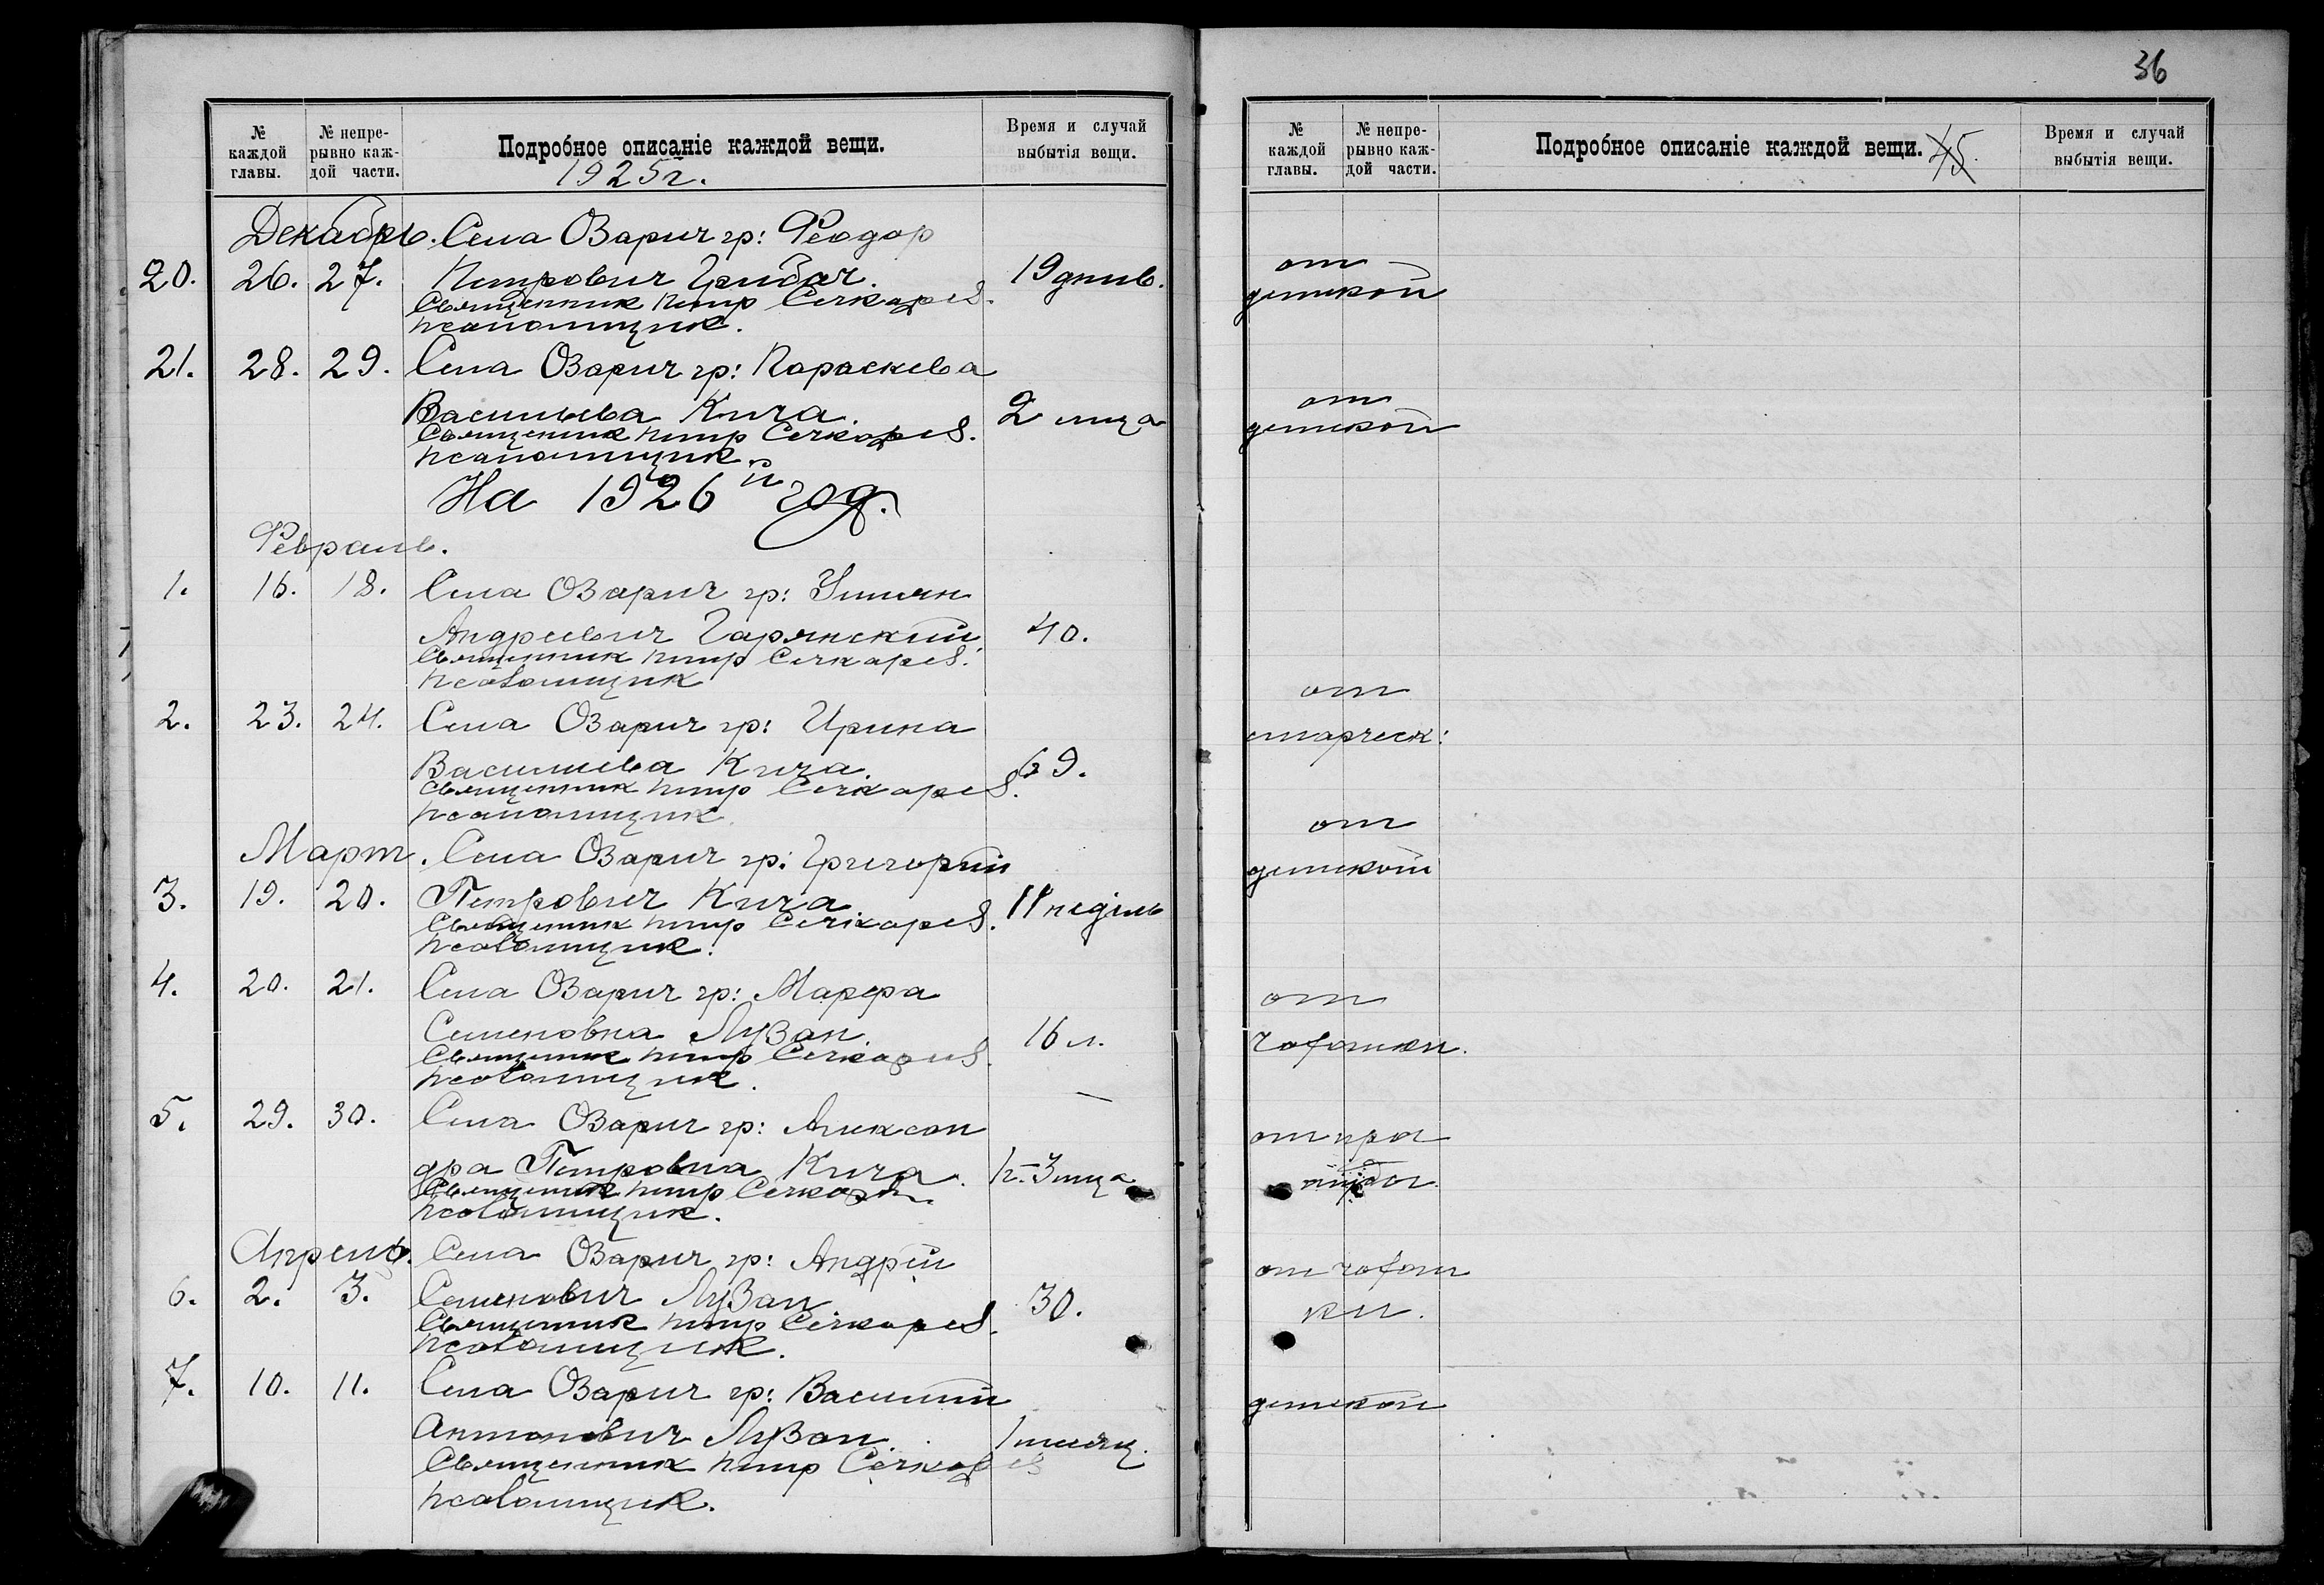 № каждой главы.
№ непрерывно каждой части.
Подробное описаніе каждой вещи.
Время и случай выбытія вещи.
1925 г.
Декабрь. Села Озарич гр: Феодор
20. 26. 27. Петрович Грибач. 19 днив.
Священник Петр Сечкарев.
Псаломщик.
21. 28. 29. Села Озарич гр: Параскева
Васильева Кича. 2 мца
Священник Петр Сечкарев.
Псаломщик.
На 1926й год.
Февраль.
1. 16. 18. Села Озарич гр:
Андреевич Гарянский. 40.
Священник Петр Сечкарев.
Псаломщик
2. 23. 24. Села Озарич гр: Ирина
Васильева Кича. 69.
Священник Петр Сечкарев.
Псаломщик
Март. Села Озарич гр: Григорий
3. 19. 20. Петрович Кича 11 неділь
Священник Петр Сечкарев.
Псаломщик.
4. 20. 21. Села Озарич гр: Марфа
Семеновна Лузан. 16 л.
Священник Петр Сечкарев.
Псаломщик.
5. 29. 30. Села Озарич гр: Алексан
дра Петровна Кича. 1 г. 3 мца
Священник Петр Сечкарев
Псаломщик.
Апрель. Села Озарич гр: Андрей
6. 2. 3. Семенович Лузан 30.
Священник Петр Сечкарев.
Псаломщик.
7. 10. 11. Села Озарич гр: Василий
Антонович Лузан. 1 месяц.
Священник Петр Сечкарев
Псаломщик.
36
№ каждой главы.
№ непрерывно каждой части.
Подробное описаніе каждой вещи. 45.
Время и случай выбытія вещи.
от
детской
от
детской
от
старческ:
от
детской
от
чахотки.
от
от чахот
ки.
детской